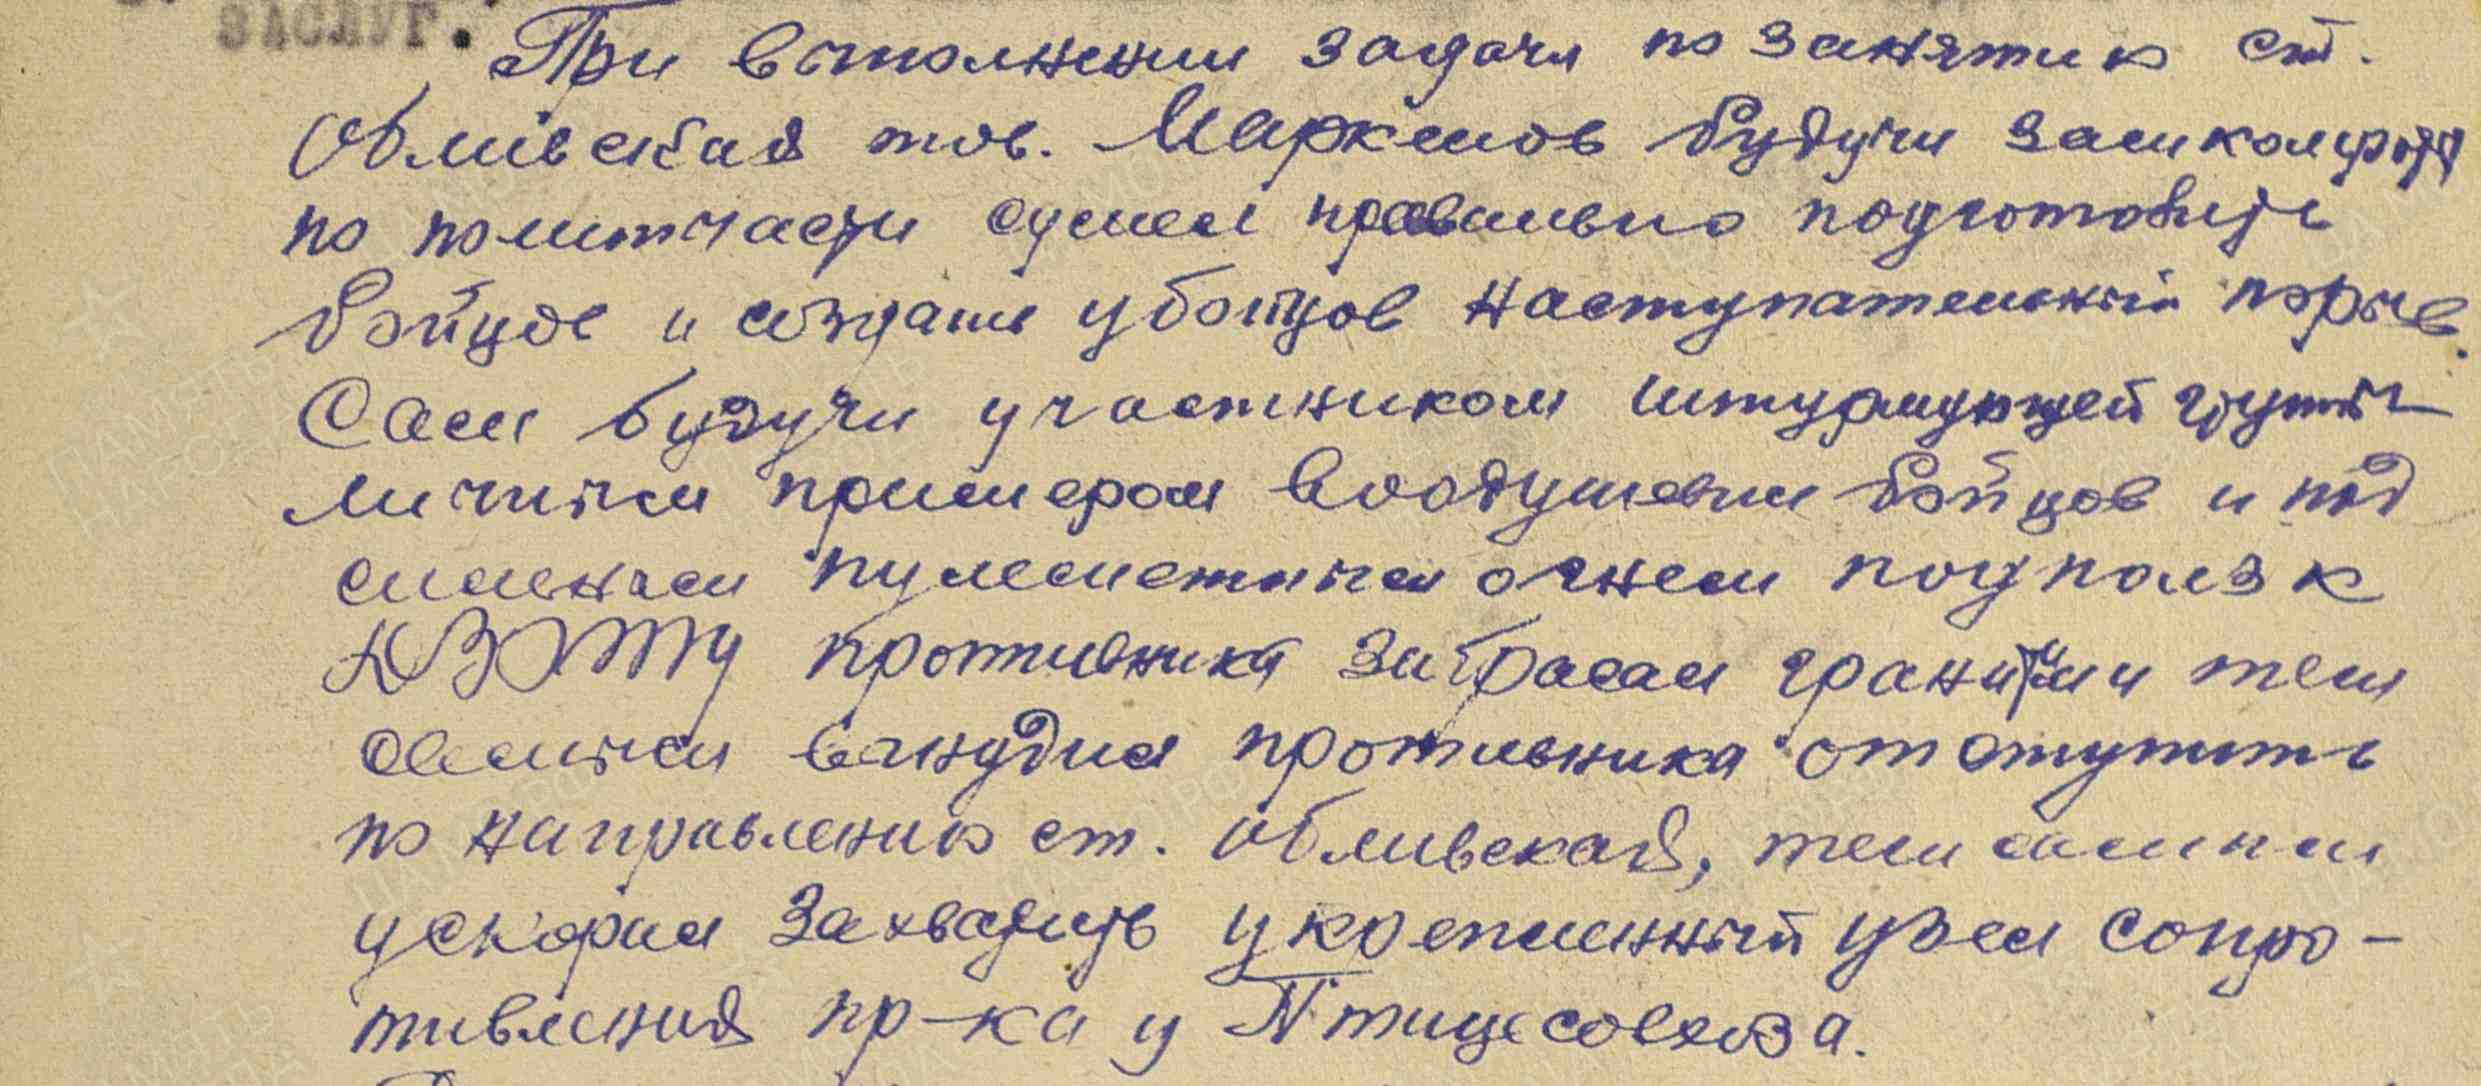 заслуг.
При выполнении задачи по занятию ст.
Обливская тов. Маркелов будучи замкомроты
по политчасти сумел правильно подготовить
бойцов и создать у бойцов наступательный порыв.
Сам будучи участником штурмующей группы
личным примером воодушевил бойцов и под
сильным пулеметным огнем подполз к
ДЗОТУ противника забросал гранатами тем
самым вынудил противника отступить
по направлению ст. Обливская, тем самым
ускорил захватить укрепленный узел сопро-
тивления пр-ка у Птицесовхоза.